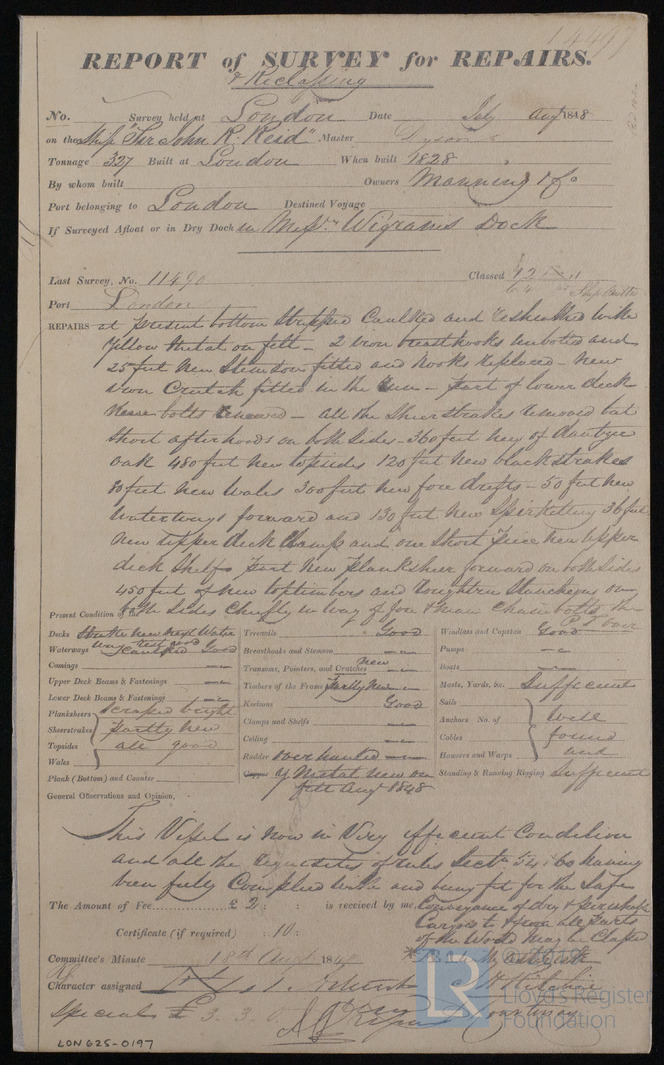 14497
REPORT of SURVEY for REPAIRS.
& Reclassing
No. Survey held at London Date July Aug 1848
on the Ship "Sir John R. Reid" Master Dyson
Tonnage 327 Built at London When built 1828
By whom built Owners Manning & Co
Port belonging to London Destined Voyage
If Surveyed Afloat or in Dry Dock in Messrs Wigrams Dock
Last Survey, No. 11490 Classed 12
Port London
REPAIRS at present bottom Stripped Caulked and resheathed with
Yellow Metal on felt - 2 iron breasthooks unbolted and
25 feet new Stemson fitted and hooks replaced - New
iron Crutch fitted in the run - part of lower deck
bolts renewed - all the Sheerstrakes removed but
Short afterhoods on both Sides - 360 feet new of Dantzic
oak 480 feet new topsides 120 feet new blackstrakes
80 feet new Wales 300 feet new fore drifts - 50 feet new
Waterways forward and 130 feet new Spirketting 36 feet
new upper deck Clamps and one Short piece new upper
deck Shelf part new planksheer forward on both Sides
450 feet of new toptimbers and Stancheons on
both Sides Chiefly in way of fore & main Chainbolts the
Present Condition of the
Decks new Good
Waterways Caulked Good
Comings
Upper Deck Beams & Fastenings
Lower Deck Beams & Fastenings
Planksheers scraped bright
Sheerstrakes partly new
Topsides all good
Wales
Plank (Bottom) and Counter
Treenails Good
Breasthooks and Stemson
Transoms, Pointers, and Crutches new
Timbers of the Frame Partly New
Keelsons Good
Clamps and Shelfs
Ceiling
Rudder overhauled
Copper Y Metal new on
felt Augt 1848
Windlass and Capstan Good
Pumps
Boats
Masts, Yards, &c. Sufficient
Sails
Anchors No. of Well
Cables found
Hawsers and Warps and
Standing & Running Rigging Sufficient
General Observations and Opinion,
This Vessel is now in Very efficient Condition
and all the requisites of rules Sectn 54 & 60 having
been fully Complied with and being fit for the Safe
Conveyance of dry & perishable
The Amount of Fee £ 2 : : is received by me,
Cargoes to & from all parts
Certificate (if required) : 10 :
of the World may be Classed
Committee's Minute 18th Augt 1848
Character assigned
Special £ 3. 3. 0 Courtenay
LON 625-0197
LR Lloyd's Register
Foundation